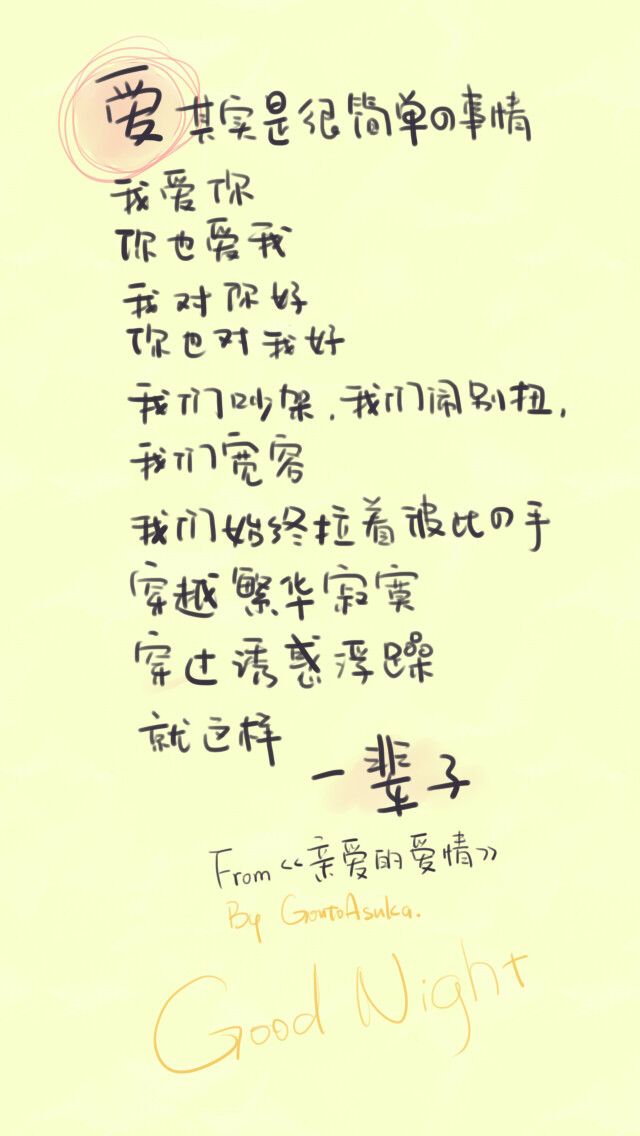 爱其实是很简单の事情
我爱你
你也爱我
我对你好
你也对我好
我们吵架，我们闹别扭，
我们宽容
我们始终拉着彼比の手
穿越繁华寂寞
穿过诱惑浮躁
就这样
一辈子
From《亲爱的爱情》
By GoutoAsuka.
Good Night